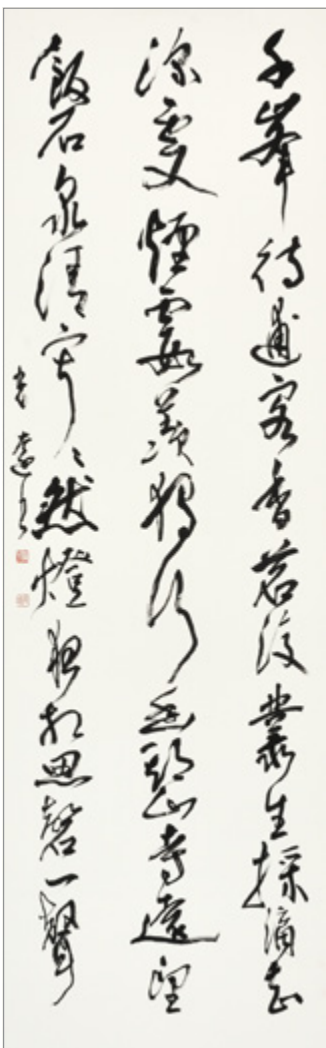 千峯待逋客香茗復叢生採摘知
深處煙霞羨獨行幽期山寺遠野
飯石泉清寂々然燈夜相思磬一聲